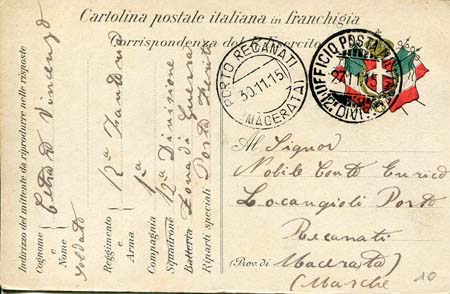 Cartolina postale italiana in franchigia
Corrispondenza del R. Esercito
PORTO RECANATI
30.11.15
(MACERATA)
UFFICIO POSTA
27.11.15
12. DIVI
Indirizzo del mittente da riprodurre nelle risposte
Cognome e Nome
Vincenzo
soldato
Reggimento e Arma
12a
Compagnia 1a
Squadrone 12a Divisione
Batteria Zona di Guerra
Riparti speciali Posta
Al Signor
Nobile Conte Enrico
Locangioli Porto
Recanati
(Prov. di Macerata)
(Marche)
10